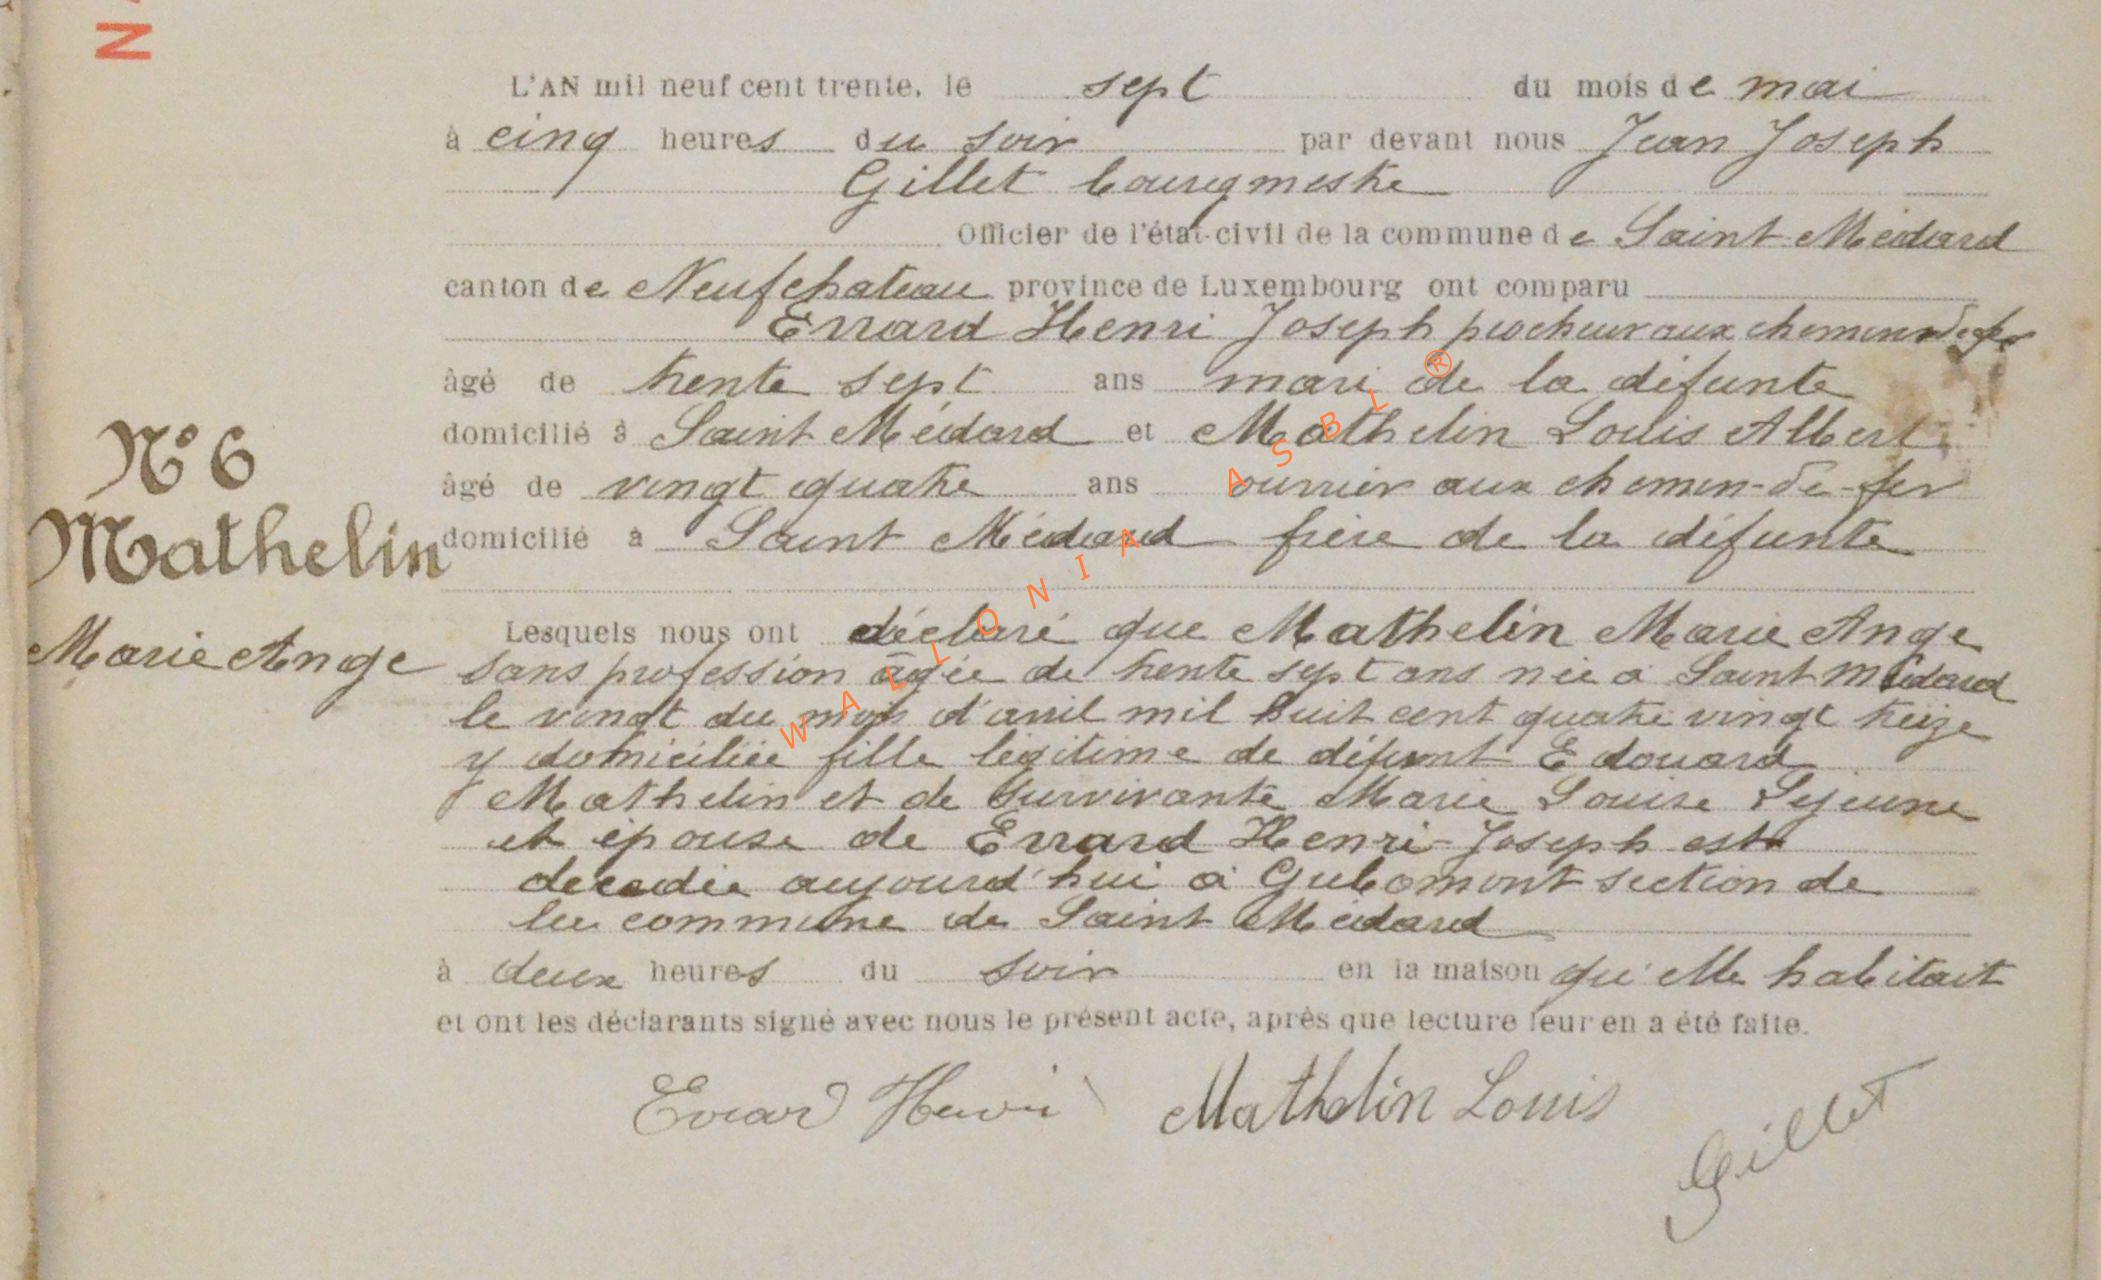 N
L'AN mil neuf cent trente, le sept du mois de mai
à cinq heures du soir par devant nous Jean Joseph
Gillet bourgmestre
Officier de l'état-civil de la commune de Saint Médard
canton de Neufchateau province de Luxembourg ont comparu
Errard Henri Joseph piocheur aux chemin de fer
âgé de trente sept ans mari de la défunte
domicilié à Saint Médard et Mathelin Louis Albert
âgé de vingt quatre ans ouvrier aux chemin-de-fer
domicilié à Saint Médard frère de la défunte
N° 6
Mathelin
Marie Ange
Lesquels nous ont déclaré que Mathelin Marie Ange
sans profession âgée de trente sept ans née à Saint Médard
le vingt du mois d'avril mil huit cent quatre vingt treize
y domiciliée fille légitime de défunt Edouard
Mathelin et de survivante Marie Louise Lejeune
et épouse de Errard Henri-Joseph est
décédée aujourd'hui à Gribomont section de
la commune de Saint Médard
à deux heures du soir en la maison qu'elle habitait
et ont les déclarants signé avec nous le présent acte, après que lecture leur en a été faite.
Evrard Henri Mathelin Louis
Gillet
WALLONIA ASBL ®